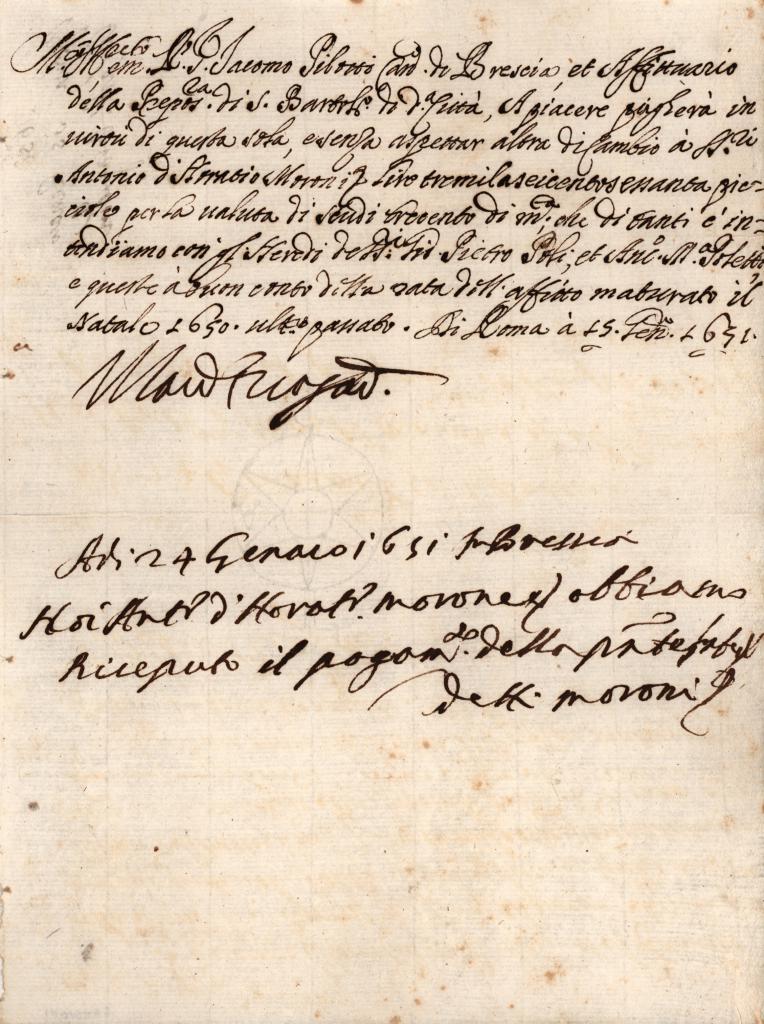 Jacomo Pilotti Can.co di Brescia, et Affittuario
della Prepos.ra di S. Bartol.o di d.a Città, A piacere pagherà in
virtù di questa sola, e senza aspettar altra di Cambio à SS.ri
Antonio d'Horatio Moroni lire tremilaseicentosessanta pic-
ciole per la valuta di scudi trecento di m.ta che di tanti c'in-
tendiamo con gl'Heredi de Pietro Poli, et Ant.o M.a Poletti
e queste à buon conto della rata dell'affitto maturato il
Natale 1650. ult.o passato. Di Roma à 15. Gen.o 1651.
Adi 24 Genaro 1651 In Bressia
Noi Ant.o d'Horat.o moroni obbiamo
Riceputo il pagam.to della
detti moroni